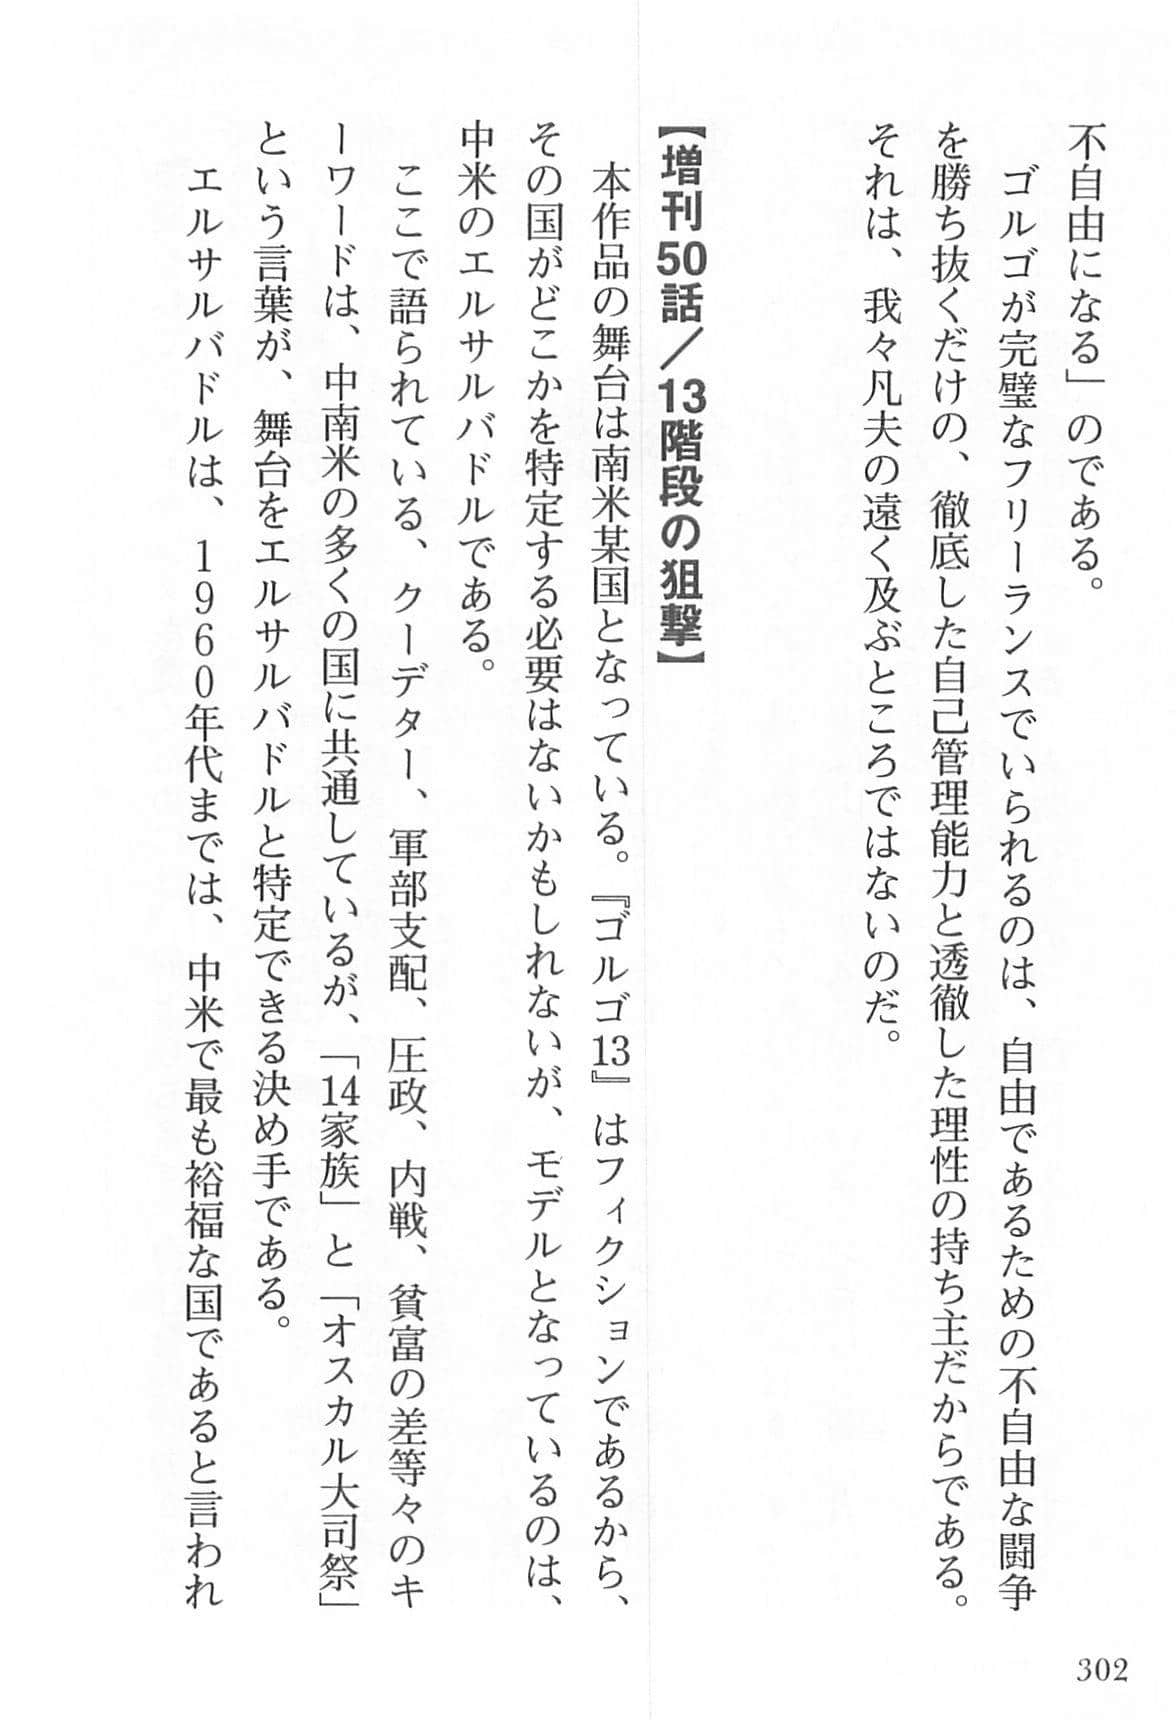 不自由になる」のである。
　ゴルゴが完璧なフリーランスでいられるのは、自由であるための不自由な闘争
を勝ち抜くだけの、徹底した自己管理能力と透徹した理性の持ち主だからである。
それは、我々凡夫の遠く及ぶところではないのだ。
【増刊50話／13階段の狙撃】
　本作品の舞台は南米某国となっている。『ゴルゴ13』はフィクションであるから、
その国がどこかを特定する必要はないかもしれないが、モデルとなっているのは、
中米のエルサルバドルである。
　ここで語られている、クーデター、軍部支配、圧政、内戦、貧富の差等々のキ
ーワードは、中南米の多くの国に共通しているが、「14家族」と「オスカル大司祭」
という言葉が、舞台をエルサルバドルと特定できる決め手である。
　エルサルバドルは、1960年代までは、中米で最も裕福な国であると言われ
302